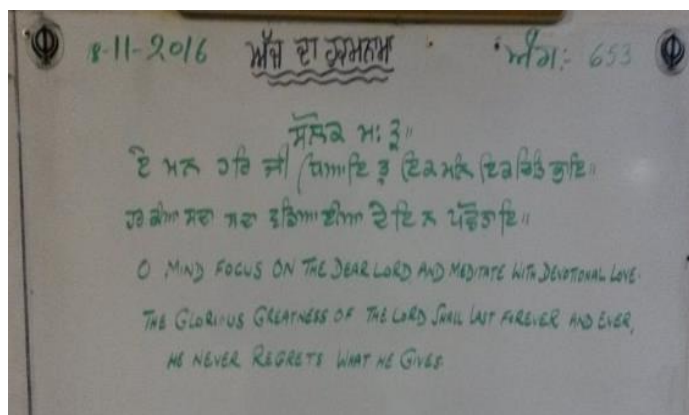 8-11-2016 ਅੱਜ ਦਾ ਹੁਕਮਨਾਮਾ ਅੰਗ:- 653
ਸਲੋਕ ਮ: ੩॥
ਏ ਮਨ ਹਰਿ ਜੀ ਧਿਆਇ ਤੂ ਇਕ ਮਨਿ ਇਕ ਚਿਤਿ ਭਾਇ॥
ਹਰਿ ਕੀਆ ਸਦਾ ਸਦਾ ਵਡਿਆਈਆ ਦੇਇ ਨ ਪਛੋਤਾਇ॥
O MIND FOCUS ON THE DEAR LORD AND MEDITATE WITH DEVOTIONAL LOVE.
THE GLORIOUS GREATNESS OF THE LORD SHALL LAST FOREVER AND EVER,
HE NEVER REGRETS WHAT HE GIVES.